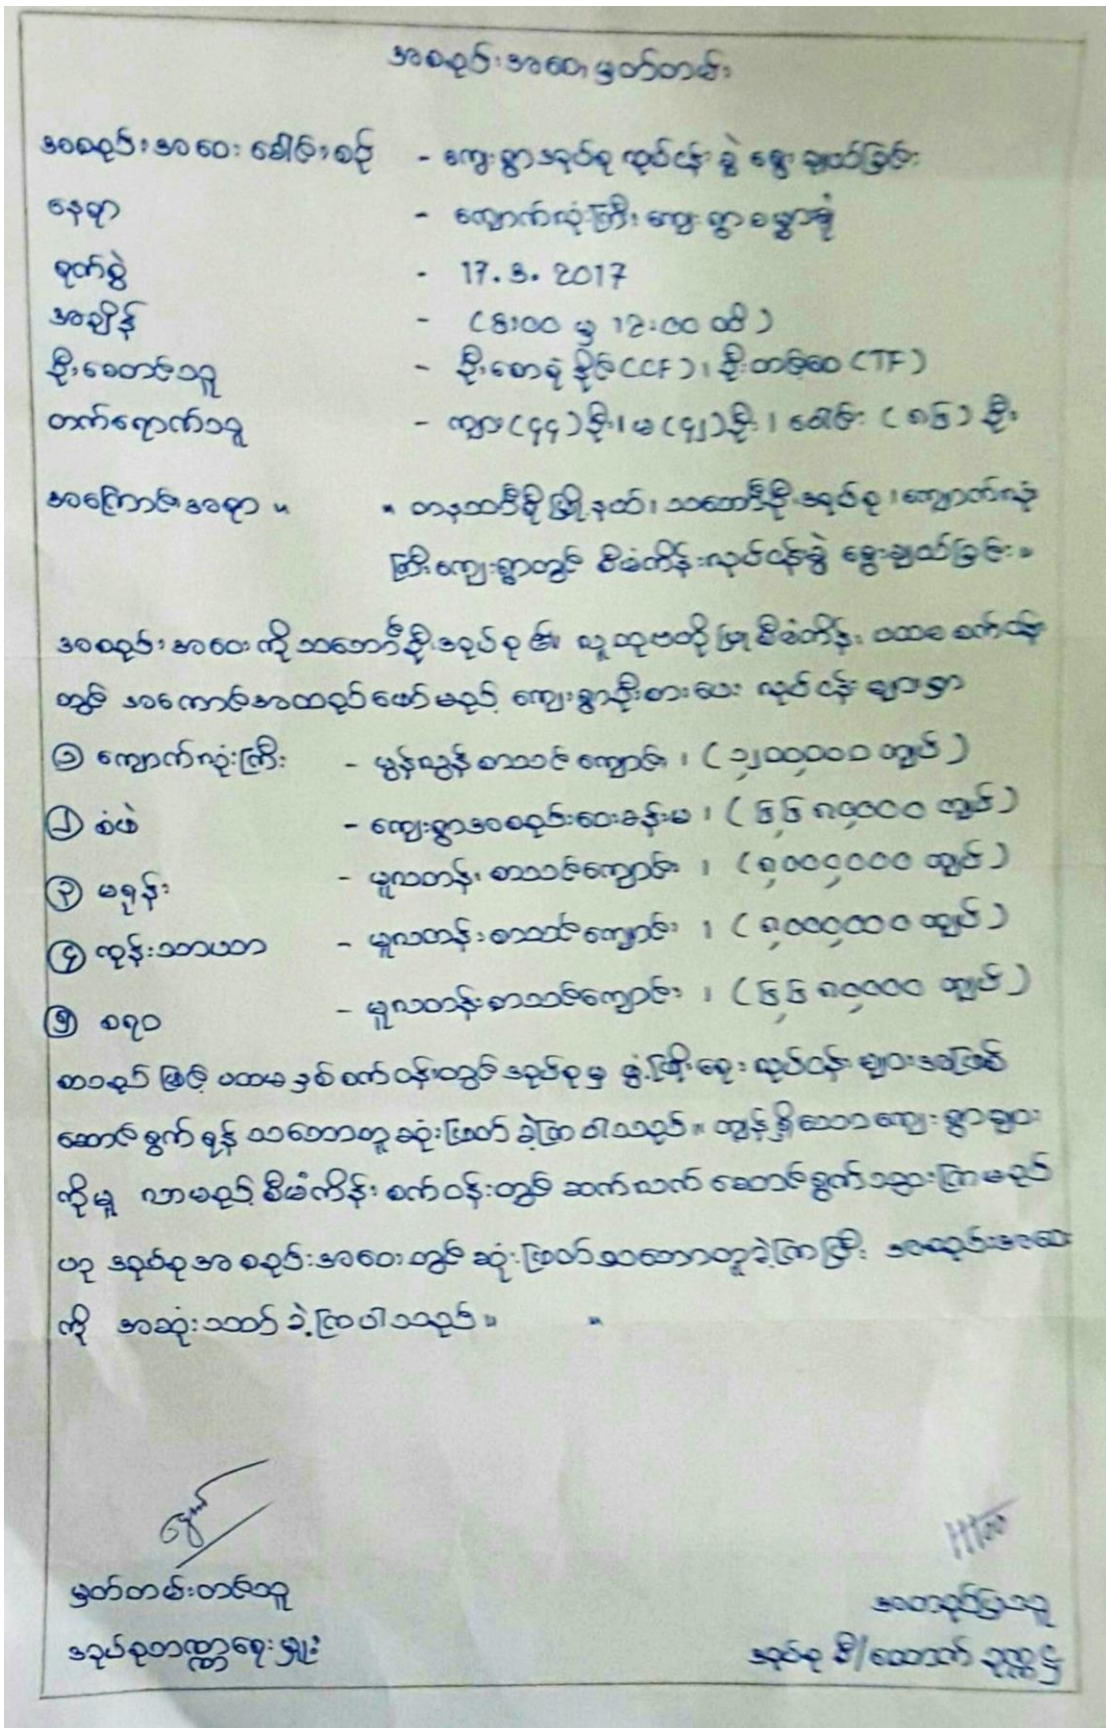 အစည်းအဝေးမှတ်တမ်း
အစည်းအဝေးခေါင်းစဉ် - ကျေးရွာအုပ်စုလုပ်ငန်းခွဲ ရွေးချယ်ခြင်း
နေရာ - ကျောက်လုံးကြီး ကျေးရွာ
ရက်စွဲ - 17.3.2017
အချိန် - (8:00 မှ 12:00 ထိ)
ဦးဆောင်သူ - (CCF)၊ (TF)
တက်ရောက်သူ - ကျား(၄၄)ဦး၊ မ(၄၂)ဦး၊ ပေါင်း (၈၆) ဦး
အကြောင်းအရာ ။ ။ တနင်္သာရီမြို့နယ်၊ သဘော်ဦးအုပ်စု၊ ကျောက်လုံး
ကြီးကျေးရွာတွင် စီမံကိန်းလုပ်ငန်းခွဲ ရွေးချယ်ခြင်း။
အစည်းအဝေးကို သဘော်ဦးအုပ်စု၏ လူထုဗဟိုပြုစီမံကိန်း ပထမစက်ဝန်း
တွင် အကောင်အထည်ဖော်မည့် ကျေးရွာဦးစားပေး လုပ်ငန်းများမှာ
၁ ကျောက်လုံးကြီး - မွန်လွန်စာသင်ကျောင်း၊ (၁၂၀၀၀၀၀ ကျပ်)
၂ စံဖဲ - ကျေးရွာအစည်းဝေးခန်းမ၊ (၆၆၈၀၀၀၀ ကျပ်)
၃ မရန်း - မူလတန်းစာသင်ကျောင်း၊ (၈၀၀၀၀၀၀ ကျပ်)
၄ ကုန်းသာယာ - မူလတန်းစာသင်ကျောင်း၊ (၈၀၀၀၀၀၀ ကျပ်)
၅ စရဝ - မူလတန်းစာသင်ကျောင်း၊ (၆၆၈၀၀၀၀ ကျပ်)
စသည်ဖြင့် ပထမနှစ်စက်ဝန်းတွင် အုပ်စုမှ ဖွံ့ဖြိုးရေးလုပ်ငန်းများအဖြစ်
ဆောင်ရွက်ရန် သဘောတူဆုံးဖြတ်ခဲ့ကြပါသည်။ ကျန်ရှိသော ကျေးရွာများ
ကိုမူ လာမည့်စီမံကိန်း စက်ဝန်းတွင် ဆက်လက်ဆောင်ရွက်သွားကြမည်
ဟု အုပ်စုအစည်းအဝေးတွင် ဆုံးဖြတ်သဘောတူခဲ့ကြပြီး အစည်းအဝေး
ကို အဆုံးသတ်ခဲ့ကြပါသည်။ ။
မှတ်တမ်းတင်သူ
အတည်ပြုသူ
အုပ်စုဘဏ္ဍာရေးမှူး
အုပ်စု စီ/ထောက် ဥက္ကဋ္ဌ